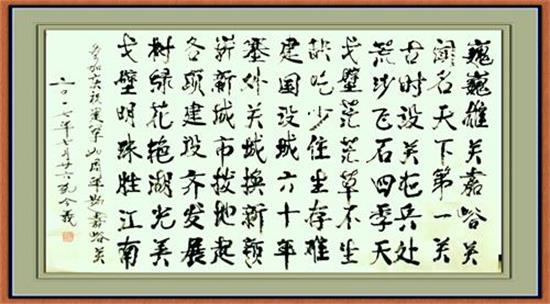 巍巍雄关嘉峪关
闻名天下第一关
古时设关屯兵处
荒沙飞石四季天
戈壁茫茫草不生
缺吃少住生存难
建国设城六十年
塞外关城换新颜
崭新城市拔地起
各项建设齐发展
树绿花艳湖光美
戈壁明珠胜江南
参加庆祝建军周年嘉峪关
二〇一七年七月廿六